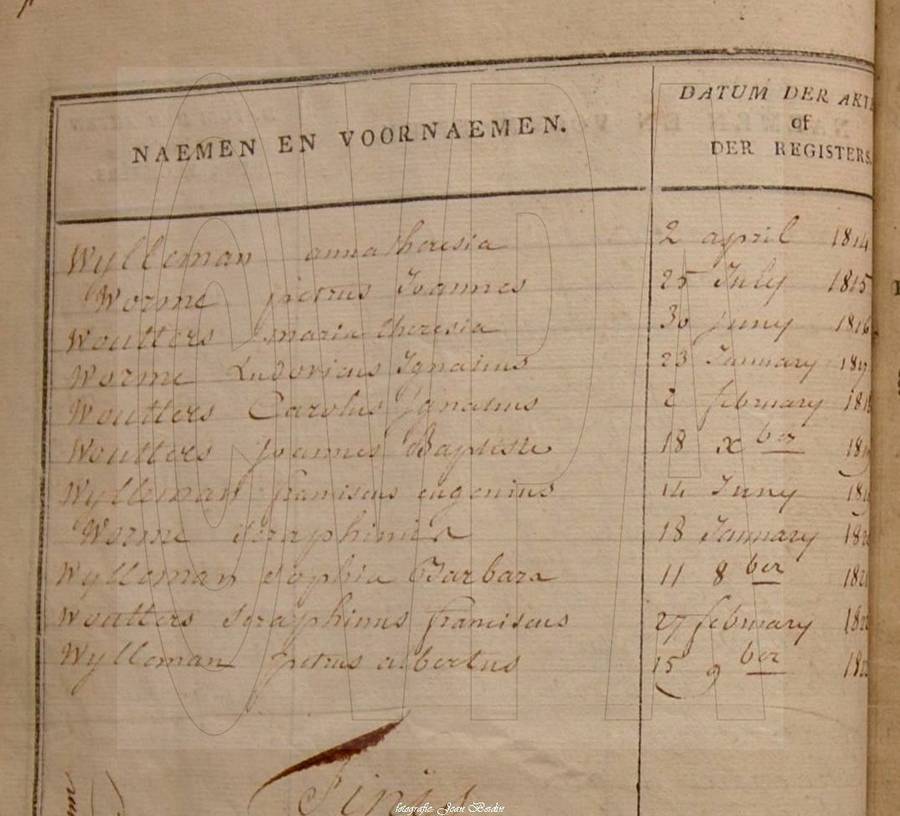 NAEMEN EN VOORNAEMEN.
DATUM DER AKTE
of
DER REGISTERS.
Wylleman anna theresia 2 april 1814
Worme pietrus Joannes 25 July 1815
Woutters maria theresia 30 juny 1816
Worme Ludovicus Ignatius 23 January 1817
Woutters Carolus Ignatius 2 february 1818
Woutters joannes Baptiste 18 x ber
Wylleman franciscus eugenius 14 Juny
Worme Seraphinia 18 January
Wylleman Sophia Barbara 11 8 ber
Woutters Seraphinus franciscus 27 february
Wylleman petrus albertus 15 9 ber
Finis
fotografie: Joan Bordin